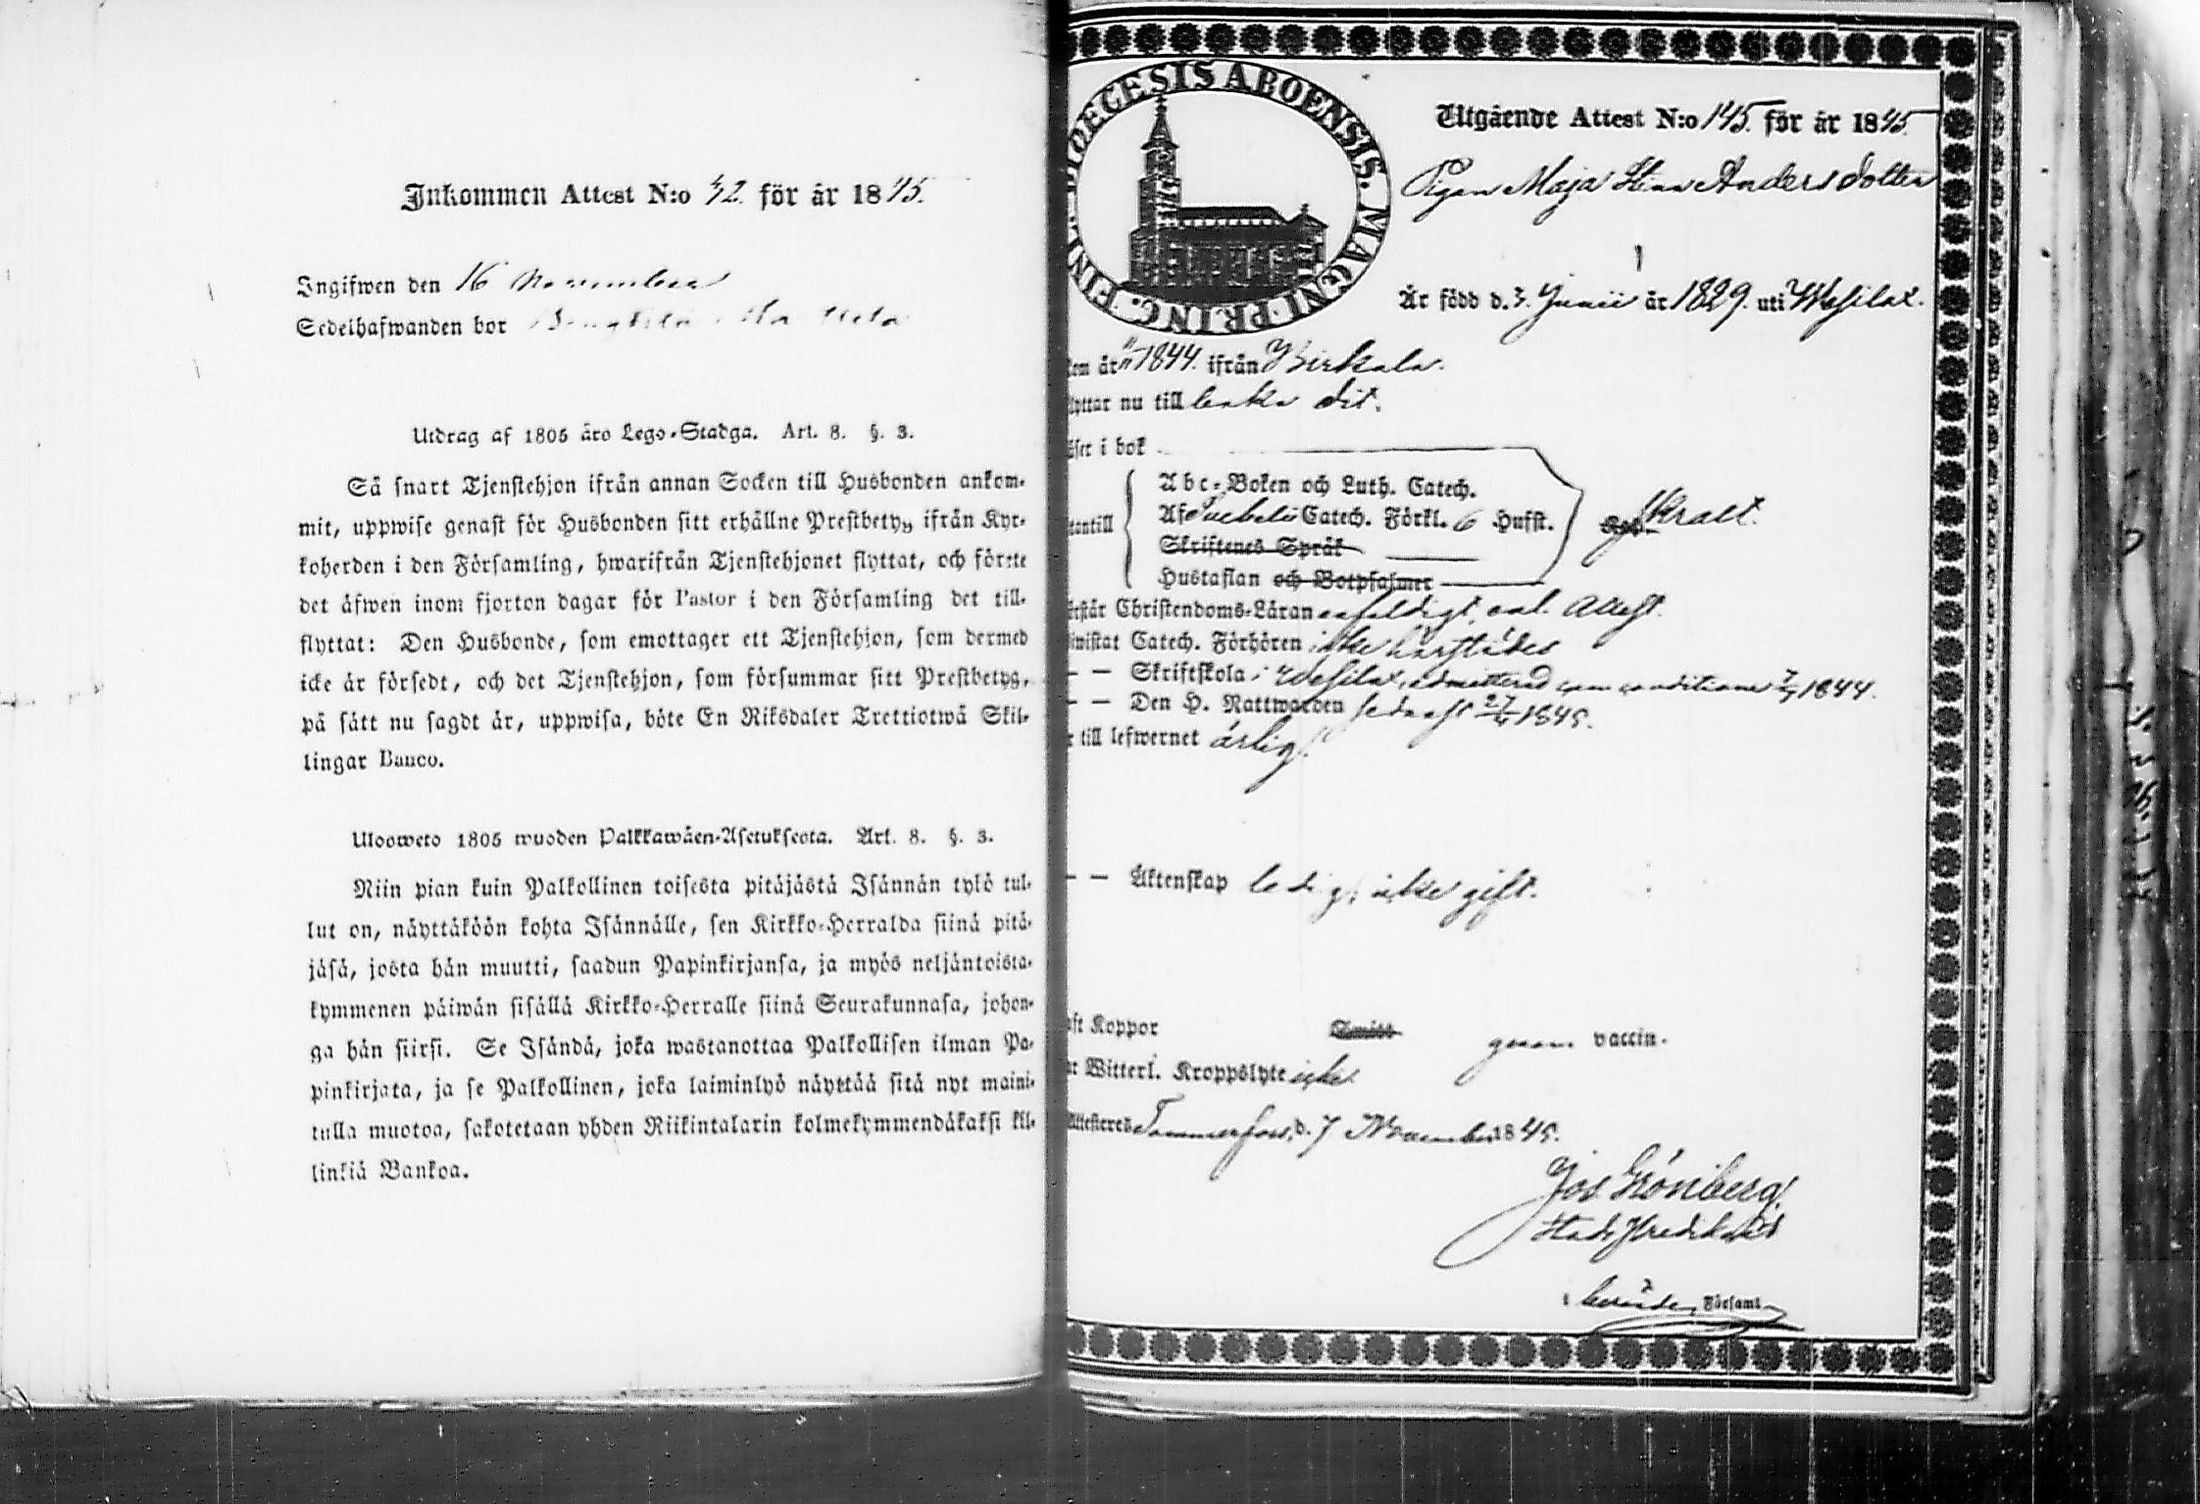 Inkommen Attest N:o 42. för år 1845.
Ingifwen den 16 November
Sedelhafwanden bor
Utdrag af 1805 års Lego-Stadga. Art. 8. §. 3.
Så snart Tjenstehjon ifrån annan Socken till Husbonden ankom-
mit, uppwise genast för Husbonden sitt erhållne Prestbetyg ifrån Kyr-
koherden i den Församling, hwarifrån Tjenstehjonet flyttat, och förete
det äfwen inom fjorton dagar för Pastor i den Församling det till-
flyttat: Den Husbonde, som emottager ett Tjenstehjon, som dermed
icke är försedt, och det Tjenstehjon, som försummar sitt Prestbetyg,
på sätt nu sagdt är, uppwisa, böte En Riksdaler Trettiotwå Skil-
lingar Banco.
Ulosweto 1805 wuoden Palkkawäen-Asetuksesta. Art. 8. §. 3.
Niin pian kuin Palkollinen toisesta pitäjästä Isännän tykö tul-
lut on, näyttäköön kohta Isännälle, sen Kirkko-Herralda siinä pitä-
jäsä, josta hän muutti, saadun Papinkirjansa, ja myös neljäntoista-
kymmenen päiwän sisällä Kirkko-Herralle siinä Seurakunnasa, johon-
ga hän siirsi. Se Isändä, joka wastanottaa Palkollisen ilman Pa-
pinkirjata, ja se Palkollinen, joka laiminlyö näyttää sitä nyt maini-
tulla muotoa, sakotetaan yhden Riikintalarin kolmekymmendäkaksi kil-
linkiä Bankoa.
DIOECESIS ABOENSIS. MAGNI PRINC. FINL.
Utgående Attest N:o 145. för år 1845.
Pigan Maja Stina Andersdotter
Är född d. 3. Junii år 1829. uti Wesilax.
kom år 1844. ifrån Birkala.
flyttar nu till baka dit.
Läser i bok
Abc-Boken och Luth. Catech.
Af Svebelii Catech. Förkl. 6 Hufst.
utantill
Skriftenes Språk
Hustaflan och Botpsalmer
svralt.
förstår Christendoms-Läran enfaldigt, enl. Attest.
biwistat Catech. Förhören icke härstädes
— — Skriftskola i Wesilax, admitterad 1844.
— — Den H. Nattwarden sednast 27 1845.
är till lefwernet ärlig.
— — Äktenskap ledig, icke gift.
haft Koppor genom vaccin.
har Witterl. Kroppslyte icke.
Attesteres Tammerfors, d. 7 November 1845.
Jos. Grönberg
Stads Predikant
Församl.